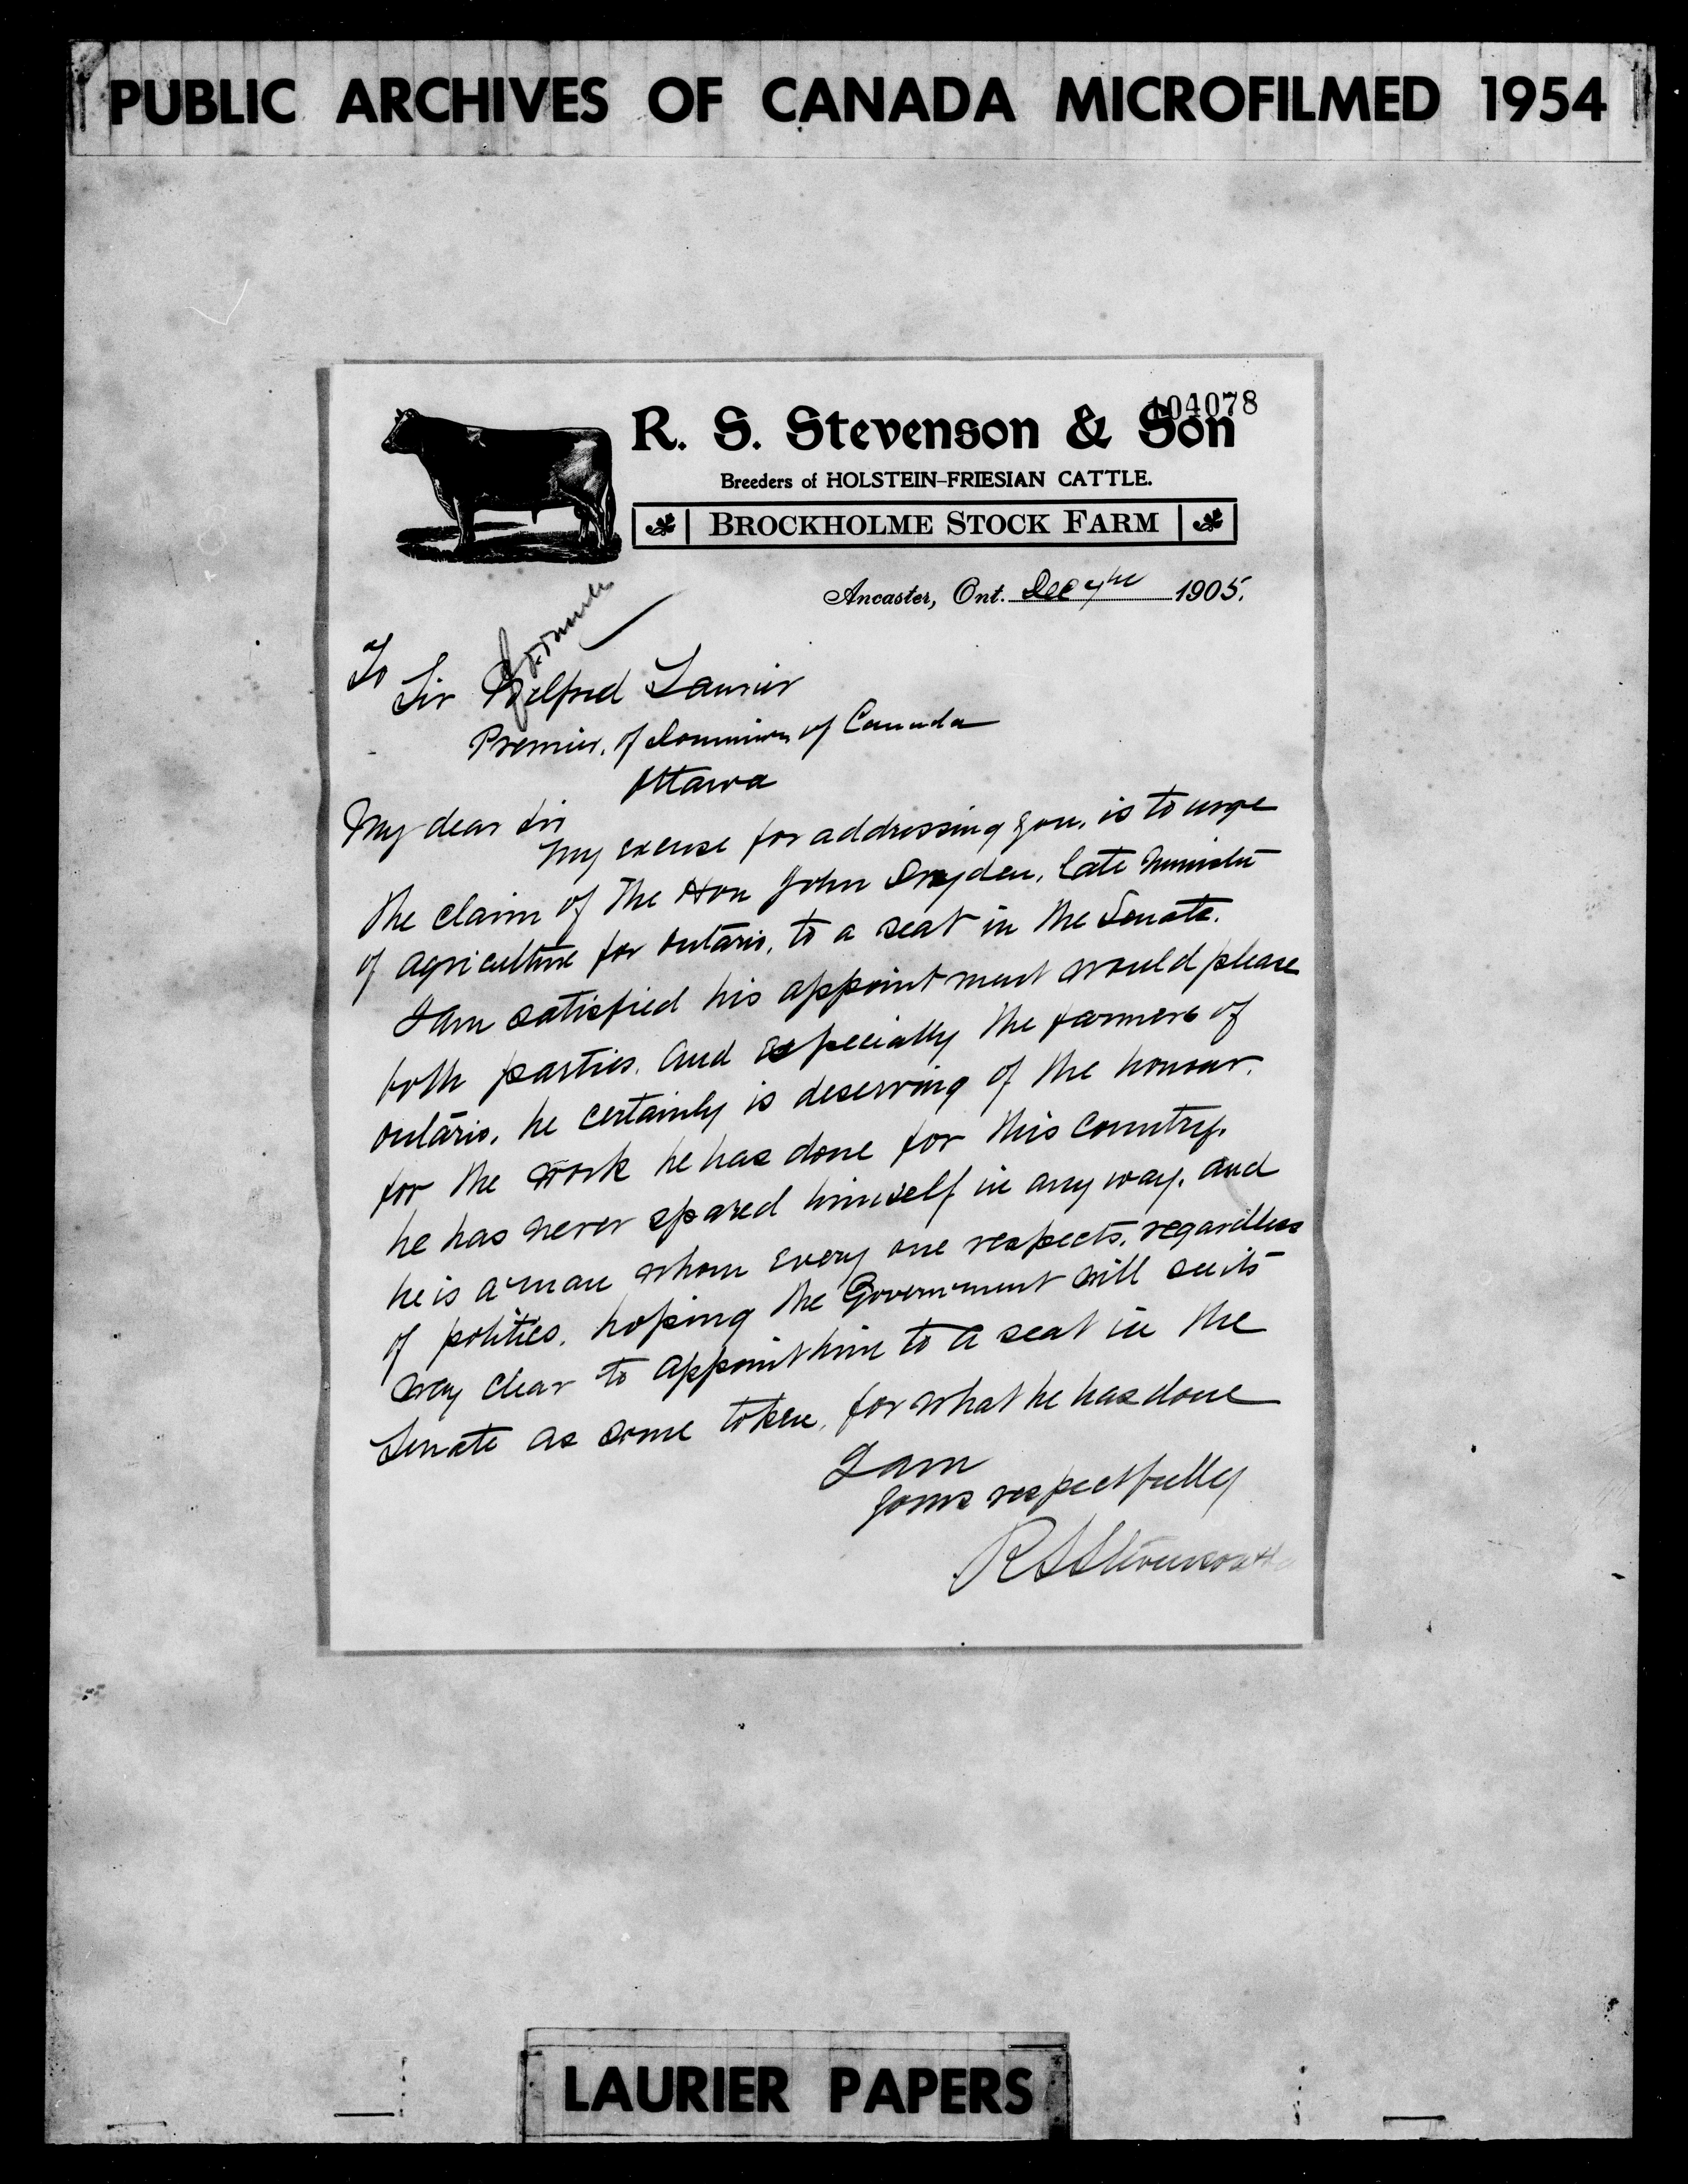 PUBLIC ARCHIVES OF CANADA MICROFILMED 1954
104078
R. S. Stevenson & Son
Breeders of HOLSTEIN-FRIESIAN CATTLE.
BROCKHOLME STOCK FARM
Ancaster, Ont. Dec 7th 1905.
To
Sir Wilfred Laurier
Premier, of Dominion of Canada
Ottawa
My dear Sir
My excuse for addressing you, is to urge
the claim of The Hon John Dryden, late Minister
of agriculture for Ontario, to a seat in the Senate.
I am satisfied his appointment would please
both parties. and especially the farmers of
Ontario, he certainly is deserving of the honour.
for the work he has done for this country.
he has never spared himself in any way. and
he is a man whom every one respects, regardless
of politics. hoping the Government will see its
way clear to appoint him to a seat in the
Senate as some token, for what he has done
I am
yours respectfully
R S Stevenson
LAURIER PAPERS